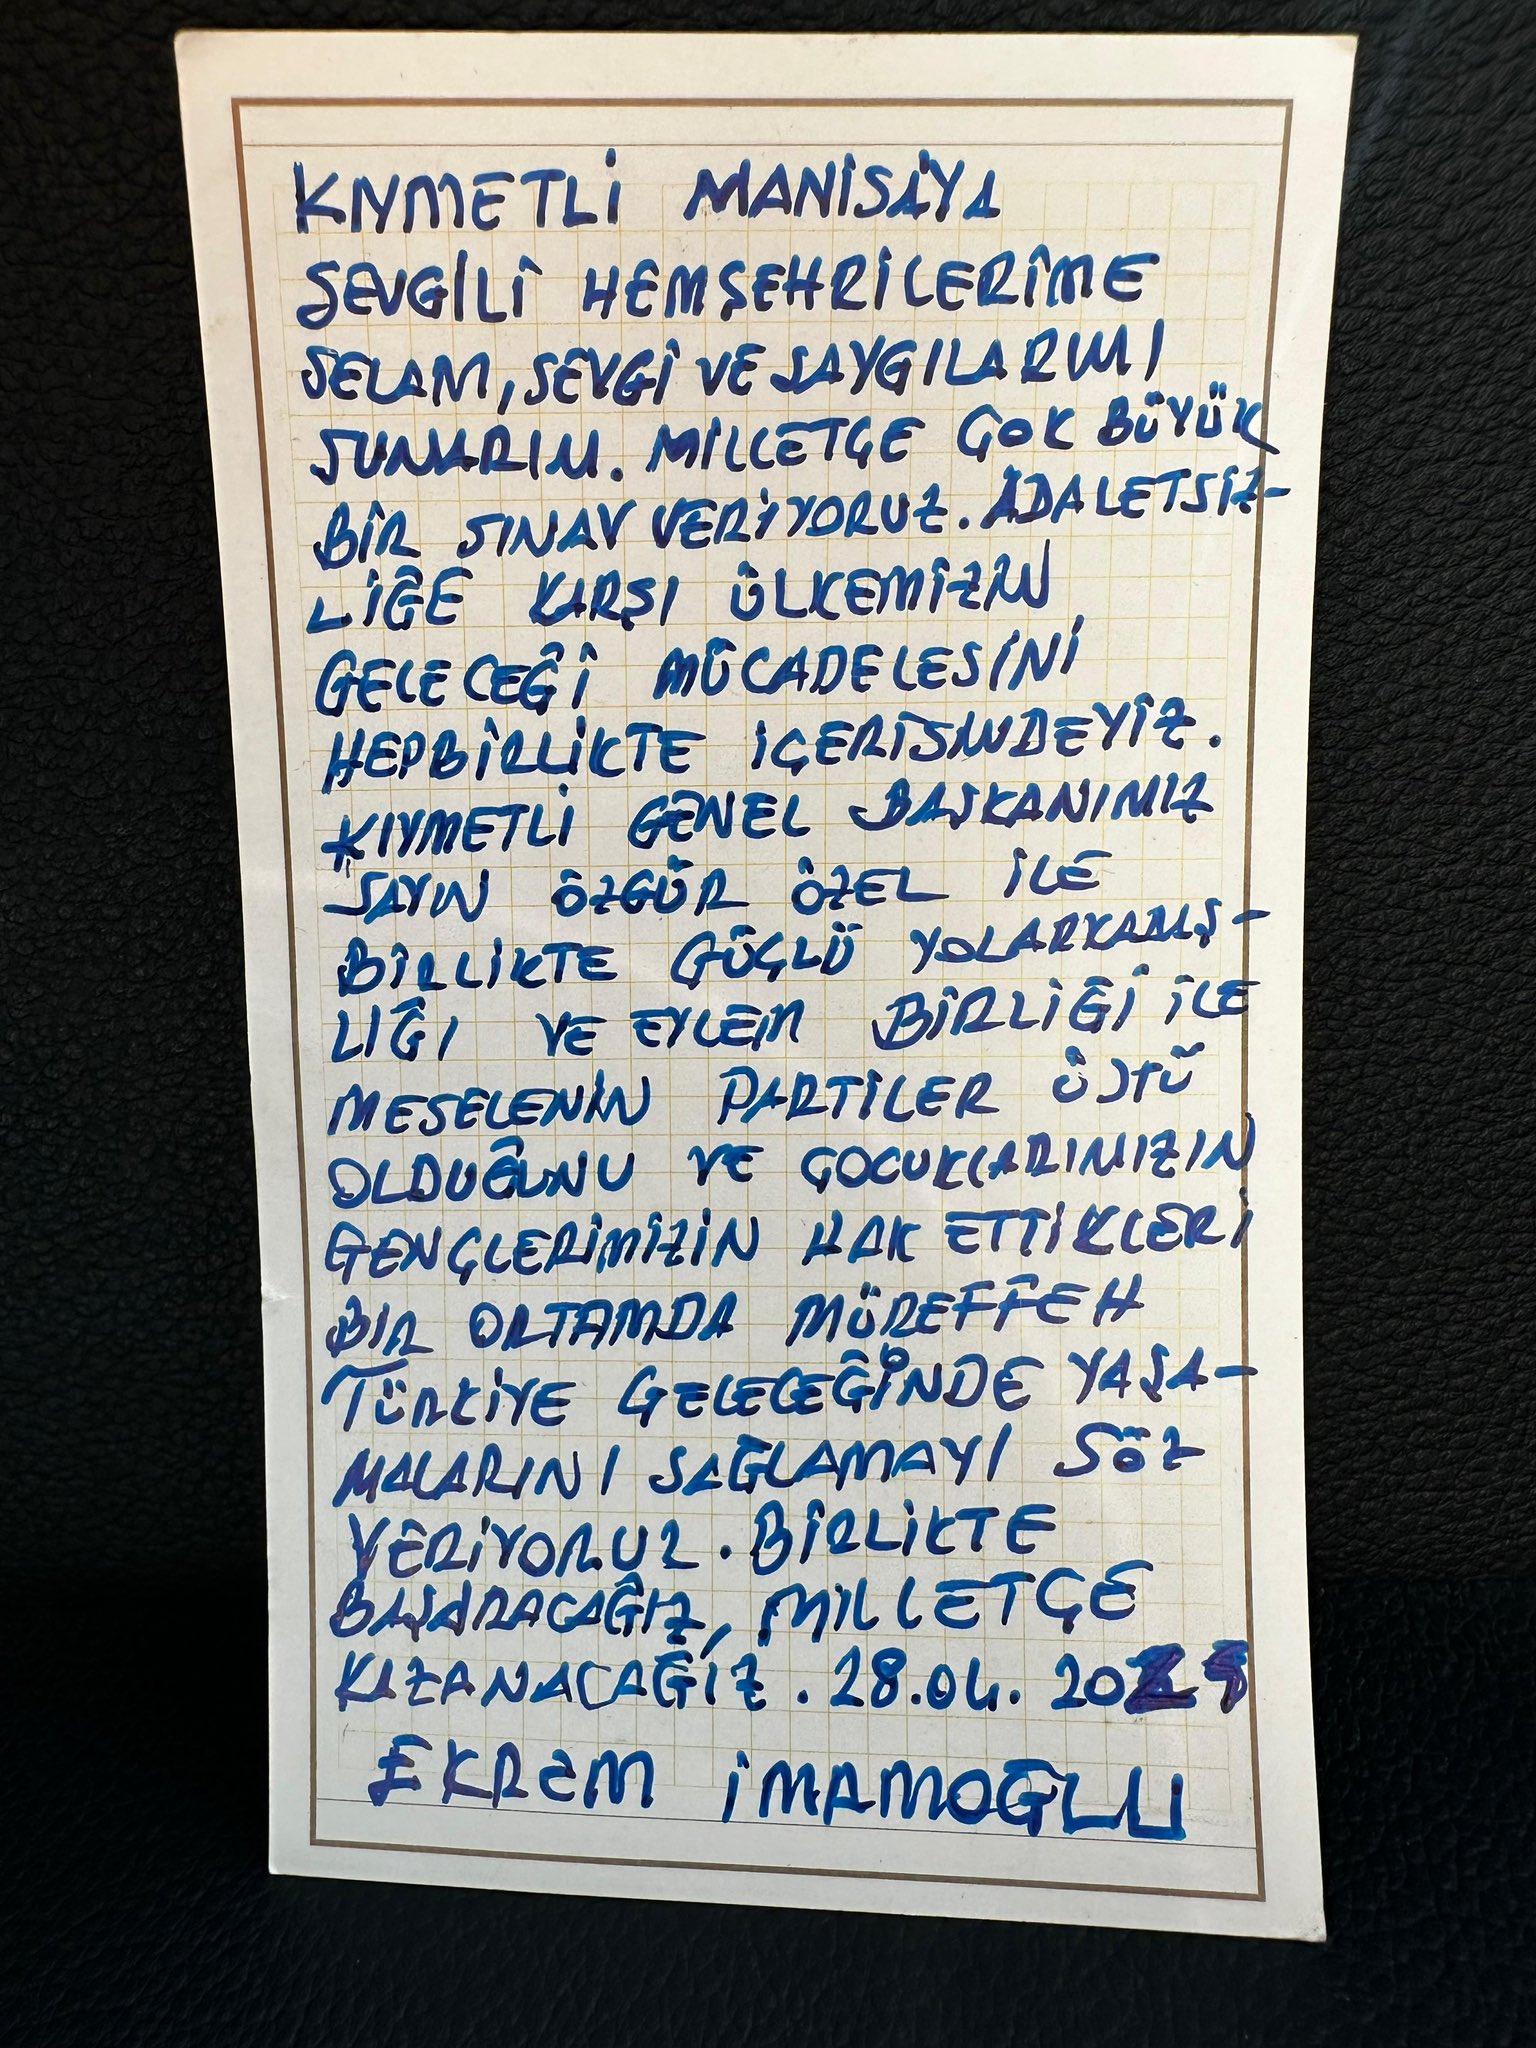 KIYMETLİ MANİSA'YA
SEVGİLİ HEMŞEHRİLERİME
SELAM, SEVGİ VE SAYGILARIMI
SUNARIM. MİLLETÇE ÇOK BÜYÜK
BİR SINAV VERİYORUZ. ADALETSİZ-
LİĞE KARŞI ÜLKEMİZİN
GELECEĞİ MÜCADELESİNİ
HEPBİRLİKTE İÇERİSİNDEYİZ.
KIYMETLİ GENEL BAŞKANIMIZ
SAYIN ÖZGÜR ÖZEL İLE
BİRLİKTE GÜÇLÜ YOLARKADAŞ-
LIĞI VE EYLEM BİRLİĞİ İLE
MESELENİN PARTİLER ÜSTÜ
OLDUĞUNU VE ÇOCUKLARIMIZIN
GENÇLERİMİZİN HAK ETTİKLERİ
BİR ORTAMDA MÜREFFEH
TÜRKİYE GELECEĞİNDE YAŞA-
MALARINI SAĞLAMAYI SÖZ
VERİYORUZ. BİRLİKTE
BAŞARACAĞIZ, MİLLETÇE
KAZANACAĞIZ. 28.04.2025
EKREM İMAMOĞLU